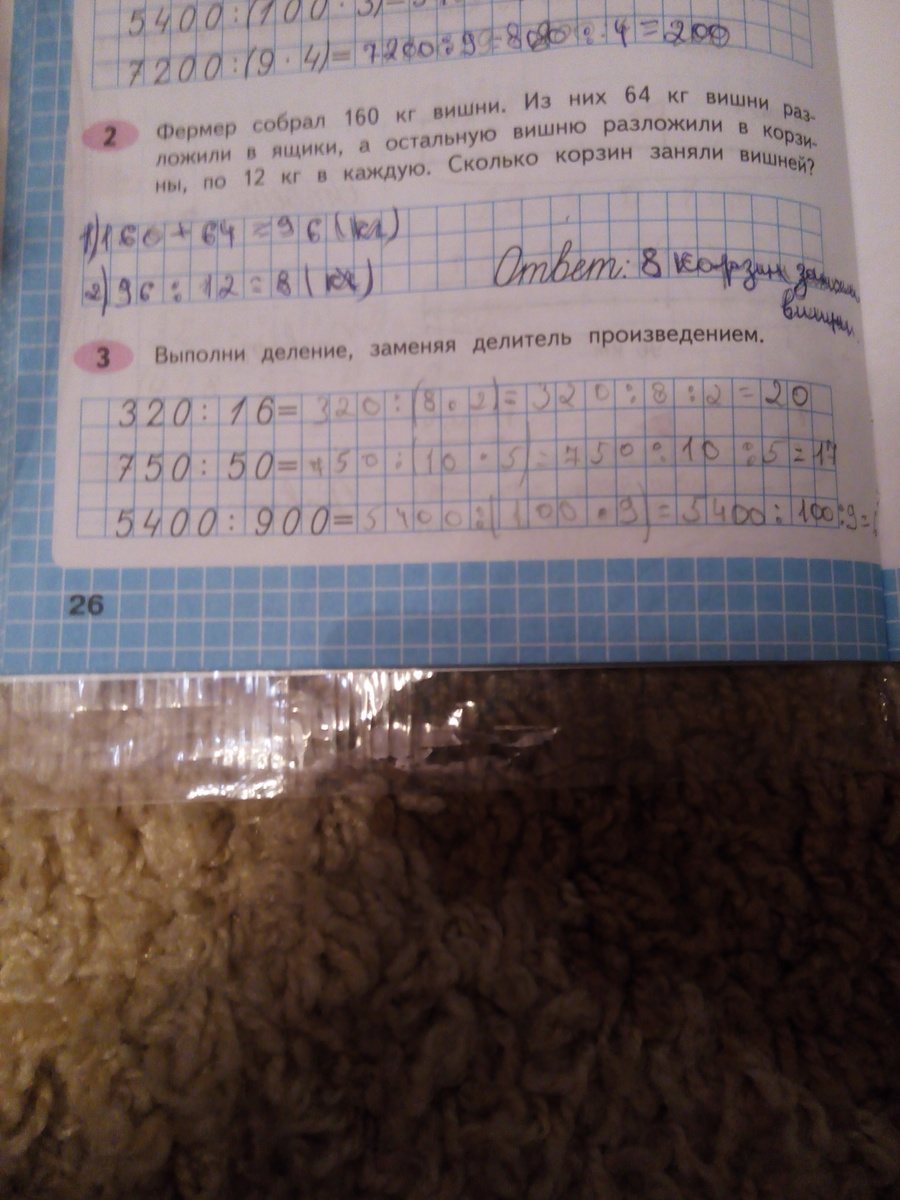 5400:(100·3)=
7200:(9·4)= 7200:9:4=200
2 Фермер собрал 160 кг вишни. Из них 64 кг вишни раз-
ложили в ящики, а остальную вишню разложили в корзи-
ны, по 12 кг в каждую. Сколько корзин заняли вишней?
1)160+64=96(кг)
2)96:12=8(кг)
Ответ: 8 корзин заняли
вишни.
3 Выполни деление, заменяя делитель произведением.
320:16=320:(8·2)=320:8:2=20
750:50=750:(10·5)=750:10:5=17
5400:900=5400:(100·9)=5400:100:9=
26